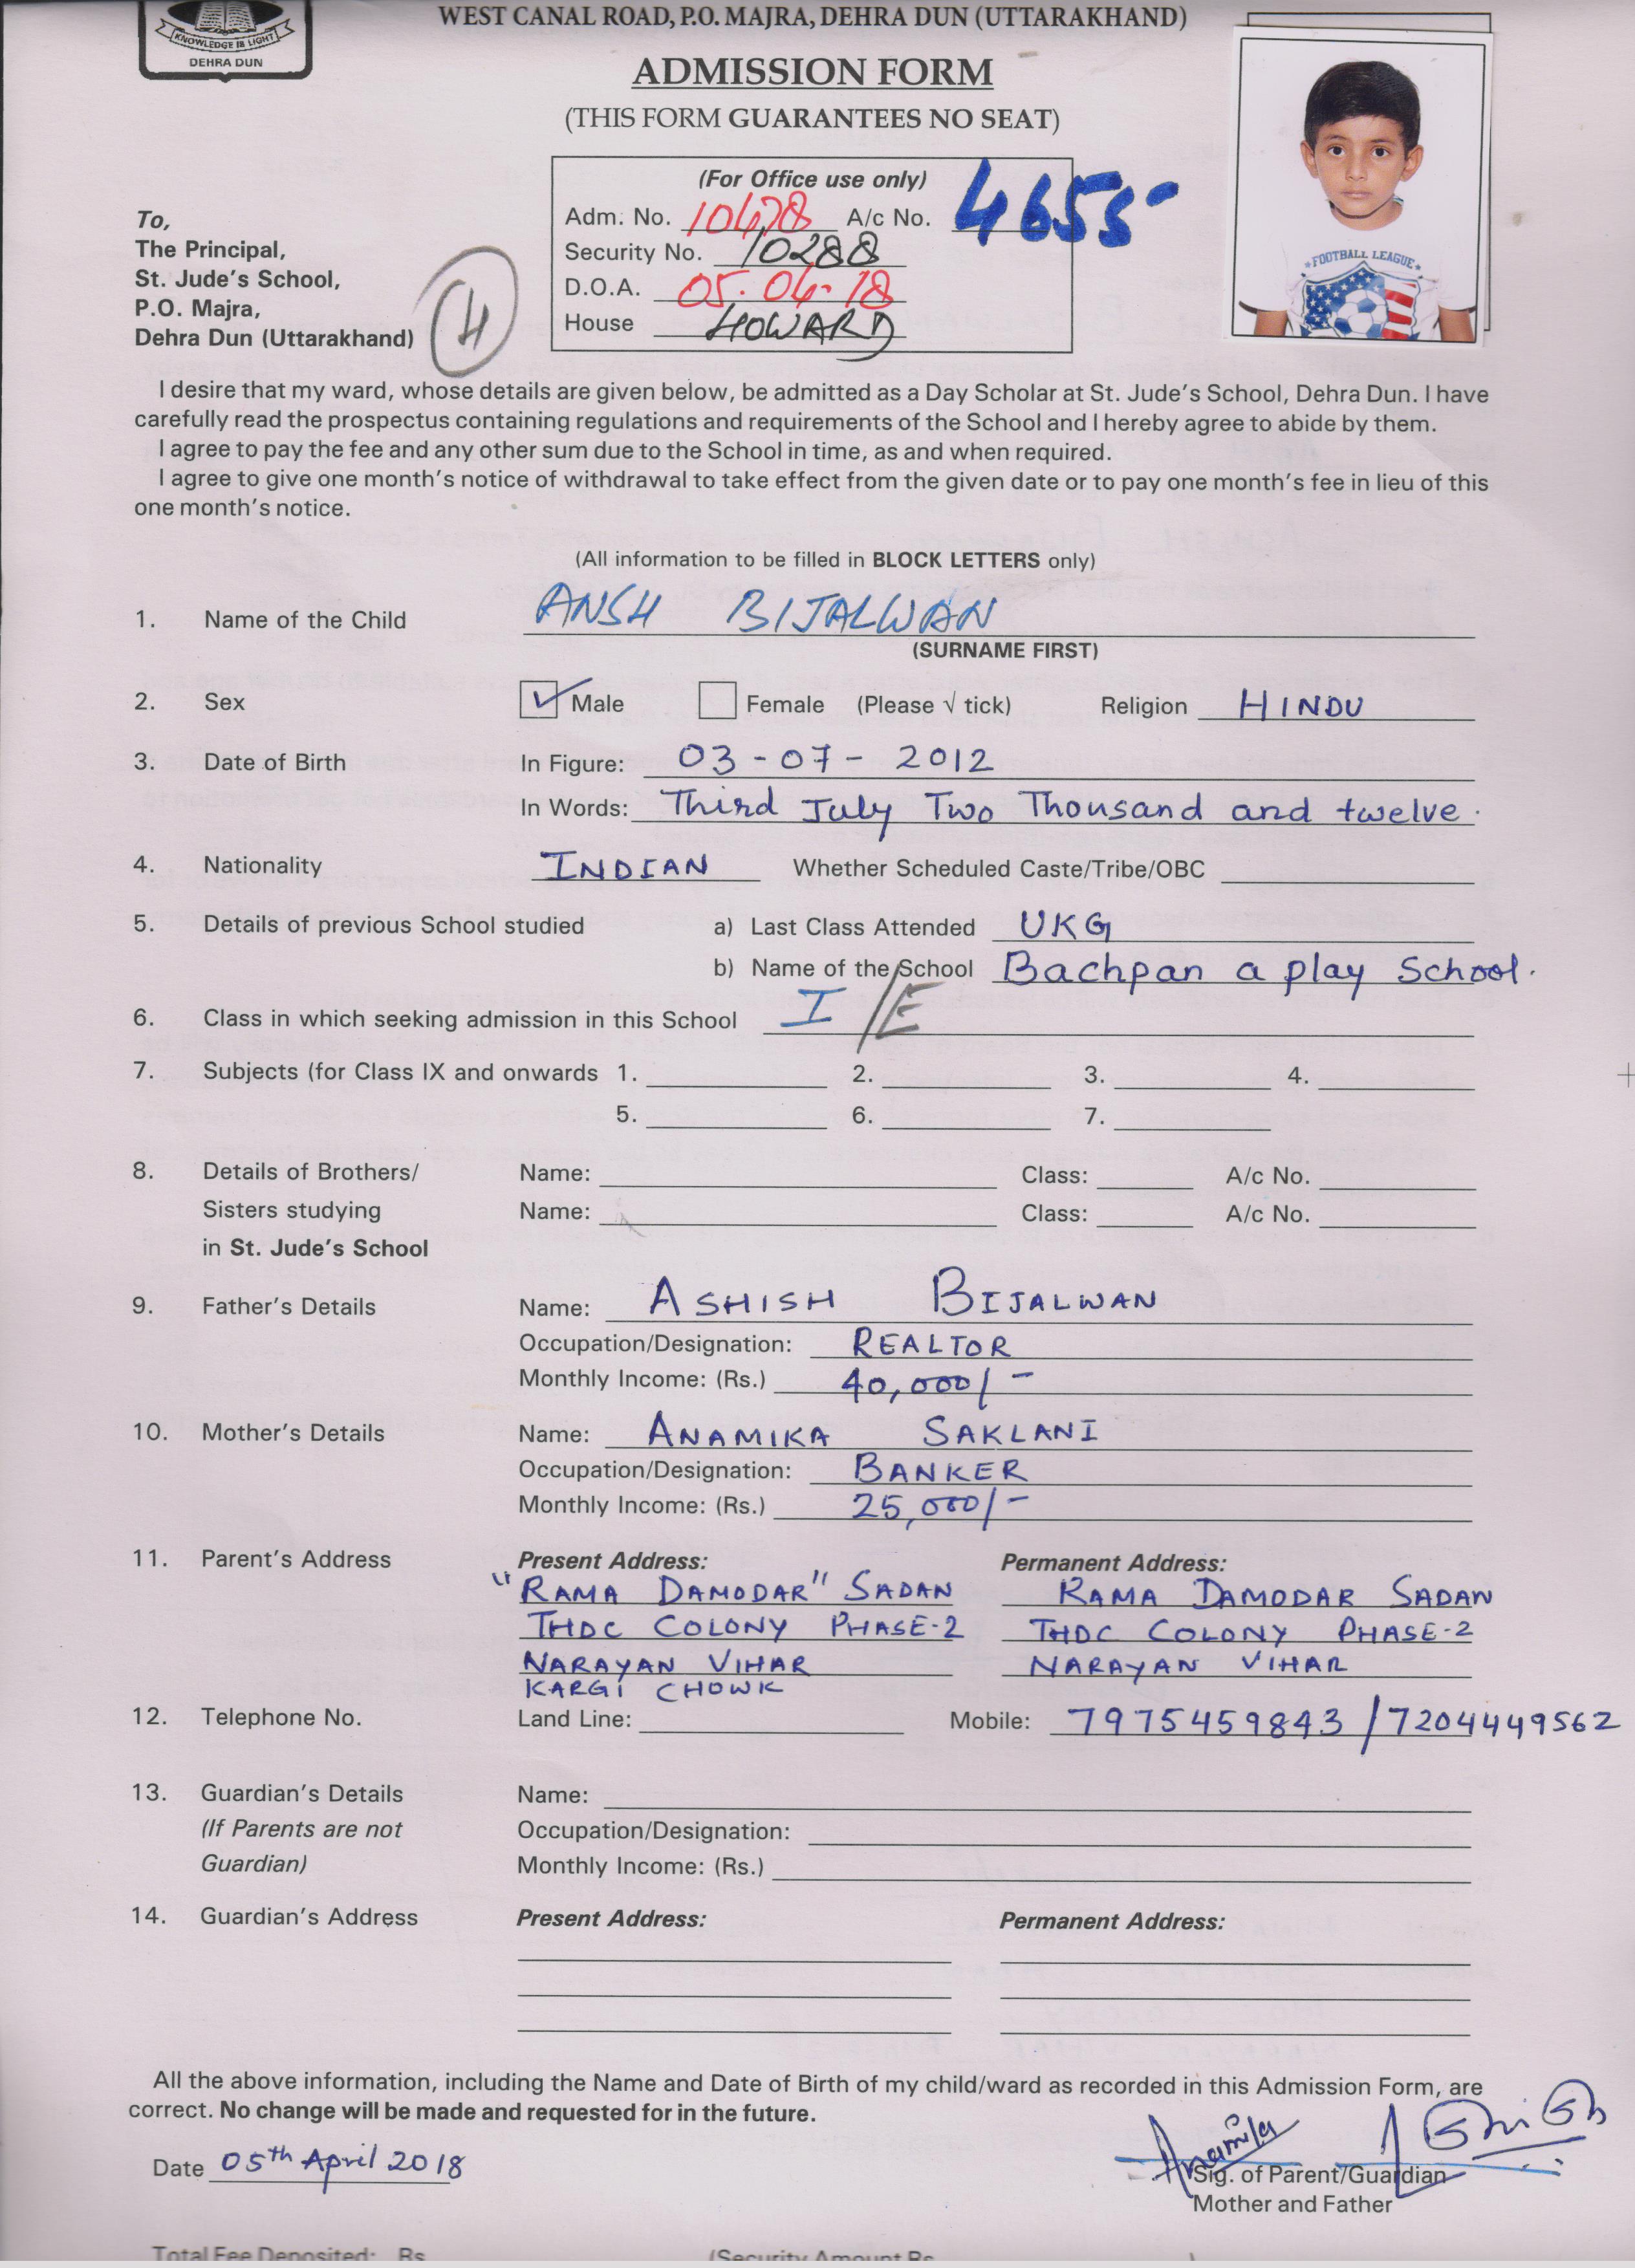 KNOWLEDGE IS LIGHT
DEHRA DUN
WEST CANAL ROAD, P.O. MAJRA, DEHRA DUN (UTTARAKHAND)
ADMISSION FORM
(THIS FORM GUARANTEES NO SEAT)
(For Office use only)
Adm. No. 10478 A/c No. 4655
Security No. 10288
D.O.A. 05.04.18
House HOWARD
FOOTBALL LEAGUE
To,
The Principal,
St. Jude's School,
P.O. Majra,
Dehra Dun (Uttarakhand)
4
I desire that my ward, whose details are given below, be admitted as a Day Scholar at St. Jude's School, Dehra Dun. I have
carefully read the prospectus containing regulations and requirements of the School and I hereby agree to abide by them.
I agree to pay the fee and any other sum due to the School in time, as and when required.
I agree to give one month's notice of withdrawal to take effect from the given date or to pay one month's fee in lieu of this
one month's notice.
(All information to be filled in BLOCK LETTERS only)
1. Name of the Child ANSH BIJALWAN
(SURNAME FIRST)
2. Sex ✓ Male Female (Please √ tick) Religion HINDU
3. Date of Birth In Figure: 03-07-2012
In Words: Third July Two Thousand and twelve.
4. Nationality INDIAN Whether Scheduled Caste/Tribe/OBC
5. Details of previous School studied a) Last Class Attended UKG
b) Name of the School Bachpan a play School.
6. Class in which seeking admission in this School I /E
7. Subjects (for Class IX and onwards 1. 2. 3. 4.
5. 6. 7.
8. Details of Brothers/ Name: Class: A/c No.
Sisters studying Name: Class: A/c No.
in St. Jude's School
9. Father's Details Name: ASHISH BIJALWAN
Occupation/Designation: REALTOR
Monthly Income: (Rs.) 40,000/-
10. Mother's Details Name: ANAMIKA SAKLANI
Occupation/Designation: BANKER
Monthly Income: (Rs.) 25,000/-
11. Parent's Address Present Address: Permanent Address:
"RAMA DAMODAR" SADAN RAMA DAMODAR SADAN
THDC COLONY PHASE-2 THDC COLONY PHASE-2
NARAYAN VIHAR NARAYAN VIHAR
KARGI CHOWK
12. Telephone No. Land Line: Mobile: 7975459843 /7204449562
13. Guardian's Details Name:
(If Parents are not Occupation/Designation:
Guardian) Monthly Income: (Rs.)
14. Guardian's Address Present Address: Permanent Address:
All the above information, including the Name and Date of Birth of my child/ward as recorded in this Admission Form, are
correct. No change will be made and requested for in the future.
Anamika Ashish
Date 05th April 2018 Sig. of Parent/Guardian
Mother and Father
Total Fee Deposited: Rs. (Security Amount Rs. )